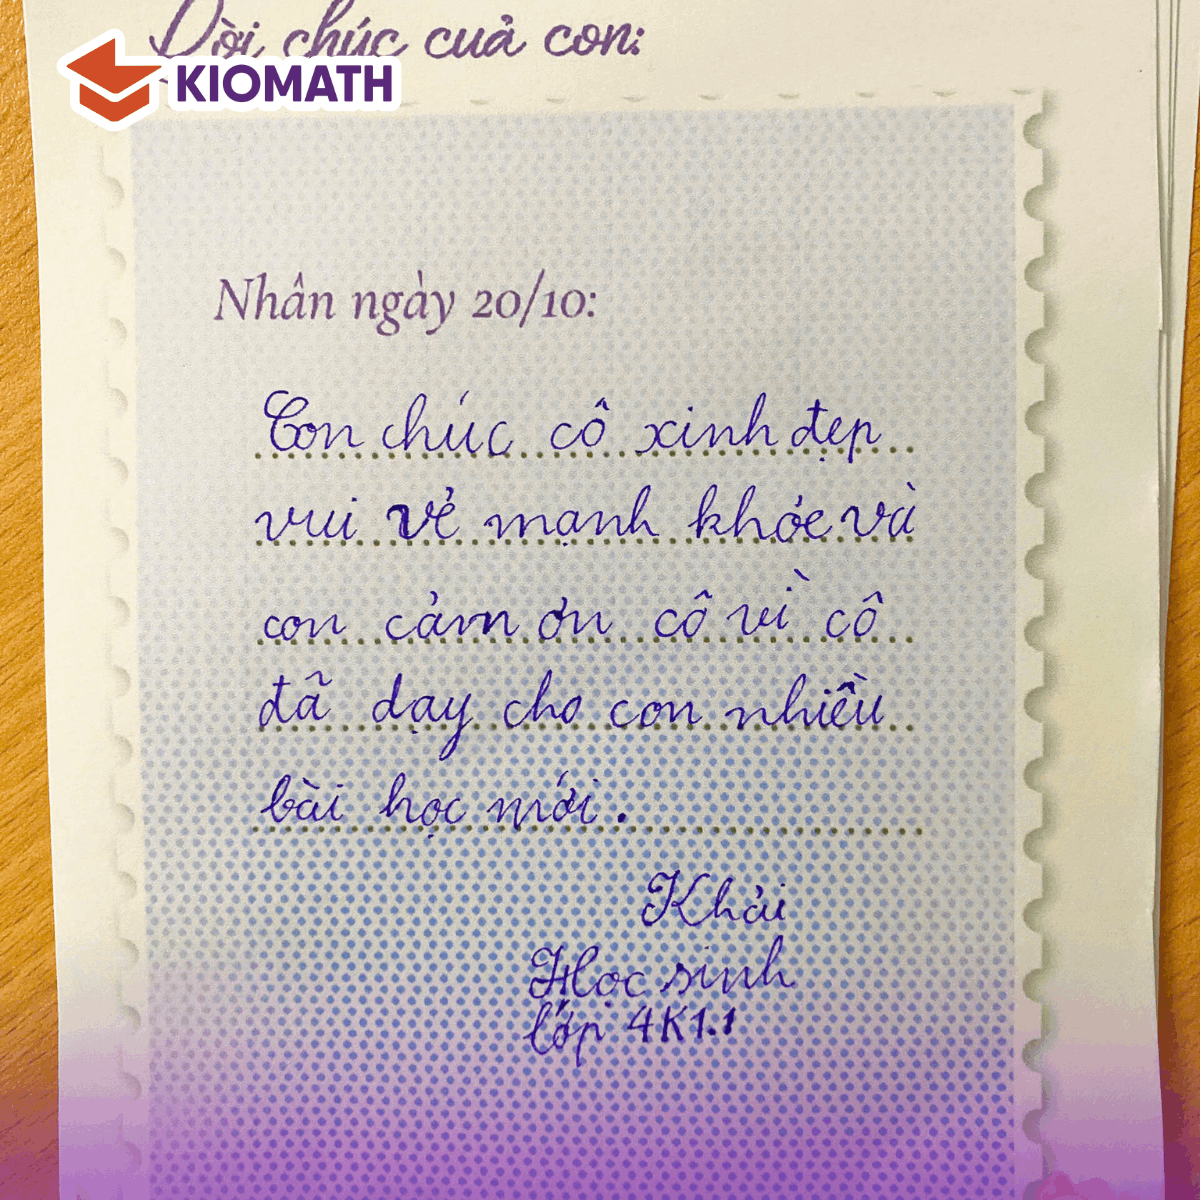 Lời chúc cuả con:
KIOMATH
Nhân ngày 20/10:
Con chúc cô xinh đẹp
vui vẻ mạnh khỏe và
con cảm ơn cô vì cô
đã dạy cho con nhiều
bài học mới.
Khải
Học sinh
lớp 4K1.1